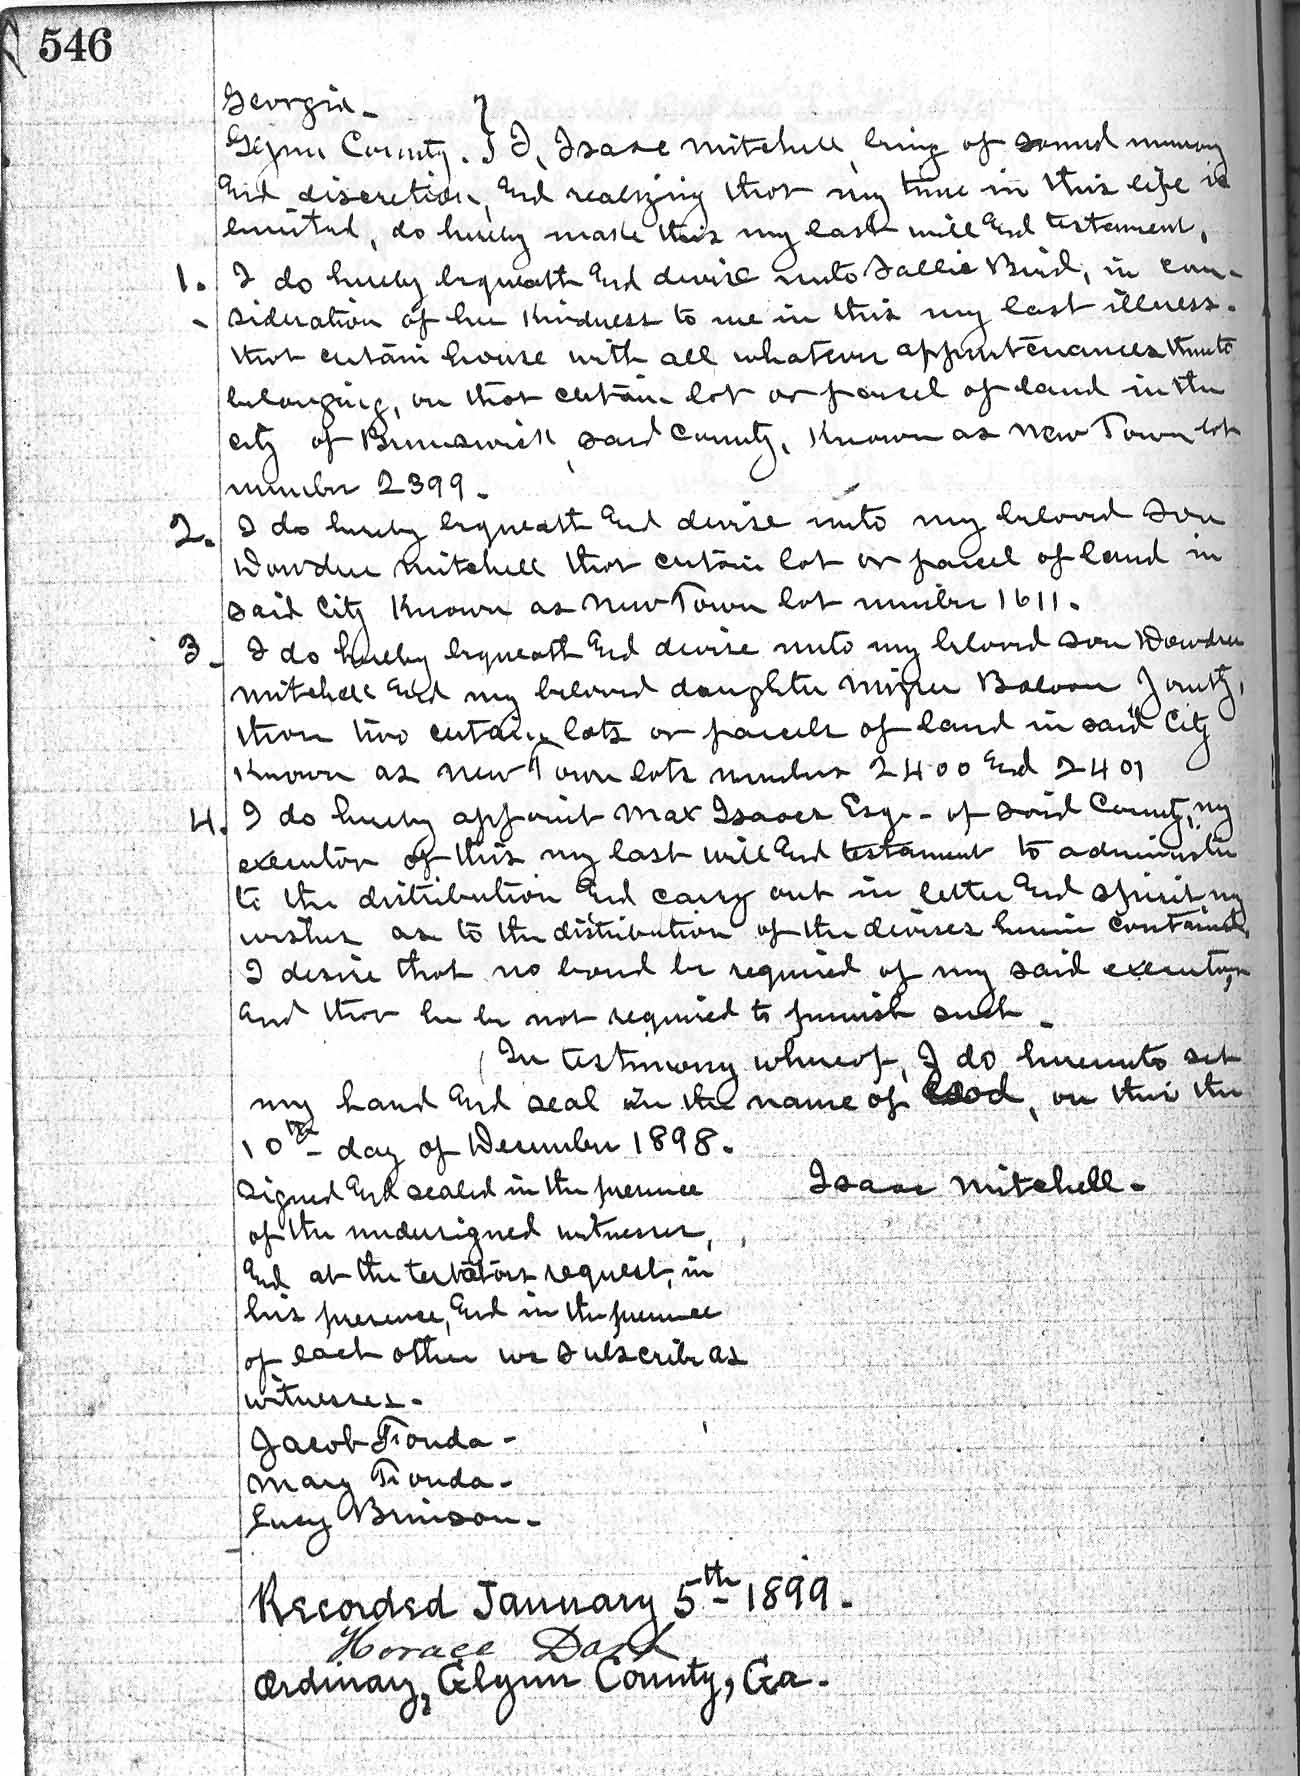 546
Georgia -
Glynn County. } I, Isaac Mitchell, being of sound memory
and discretion, and realizing that my time in this life is
limited, do hereby make this my last will and testament.
1. I do hereby bequeath and devise unto Sallie Bird, in con-
sideration of her kindness to me in this my last illness.
that certain house with all whatever appurtenances thereto
belonging, on that certain lot or parcel of land in the
city of Brunswick, said county, known as New Town lot
number 2399.
2. I do hereby bequeath and devise unto my beloved son
Mitchell that certain lot or parcel of land in
said City known as New Town lot number 1611.
3. I do hereby bequeath and devise unto my beloved son
Mitchell and my beloved daughter jointly,
those two certain lots or parcels of land in said City
known as New Town lots number 2400 and 2401
4. I do hereby appoint Max Isaacs Esq. - of said County, my
executor of this my last will and testament to administer
to the distribution and carry out in letter and spirit my
wishes as to the distribution of the devises herein contained,
I desire that no bond be required of my said executor,
and that he be not required to furnish such -
In testimony whereof, I do hereunto set
my hand and seal in the name of God, on this the
10th - day of December 1898.
Signed and sealed in the presence
Isaac Mitchell -
of the undersigned witnesses,
and at the testators request, in
his presence, and in the presence
of each other we subscribe as
witnesses -
Jacob Fronda -
Mary Fronda -
Lucy Brinson -
Recorded January 5th - 1899.
Horace Dart
Ordinary, Glynn County, Ga.